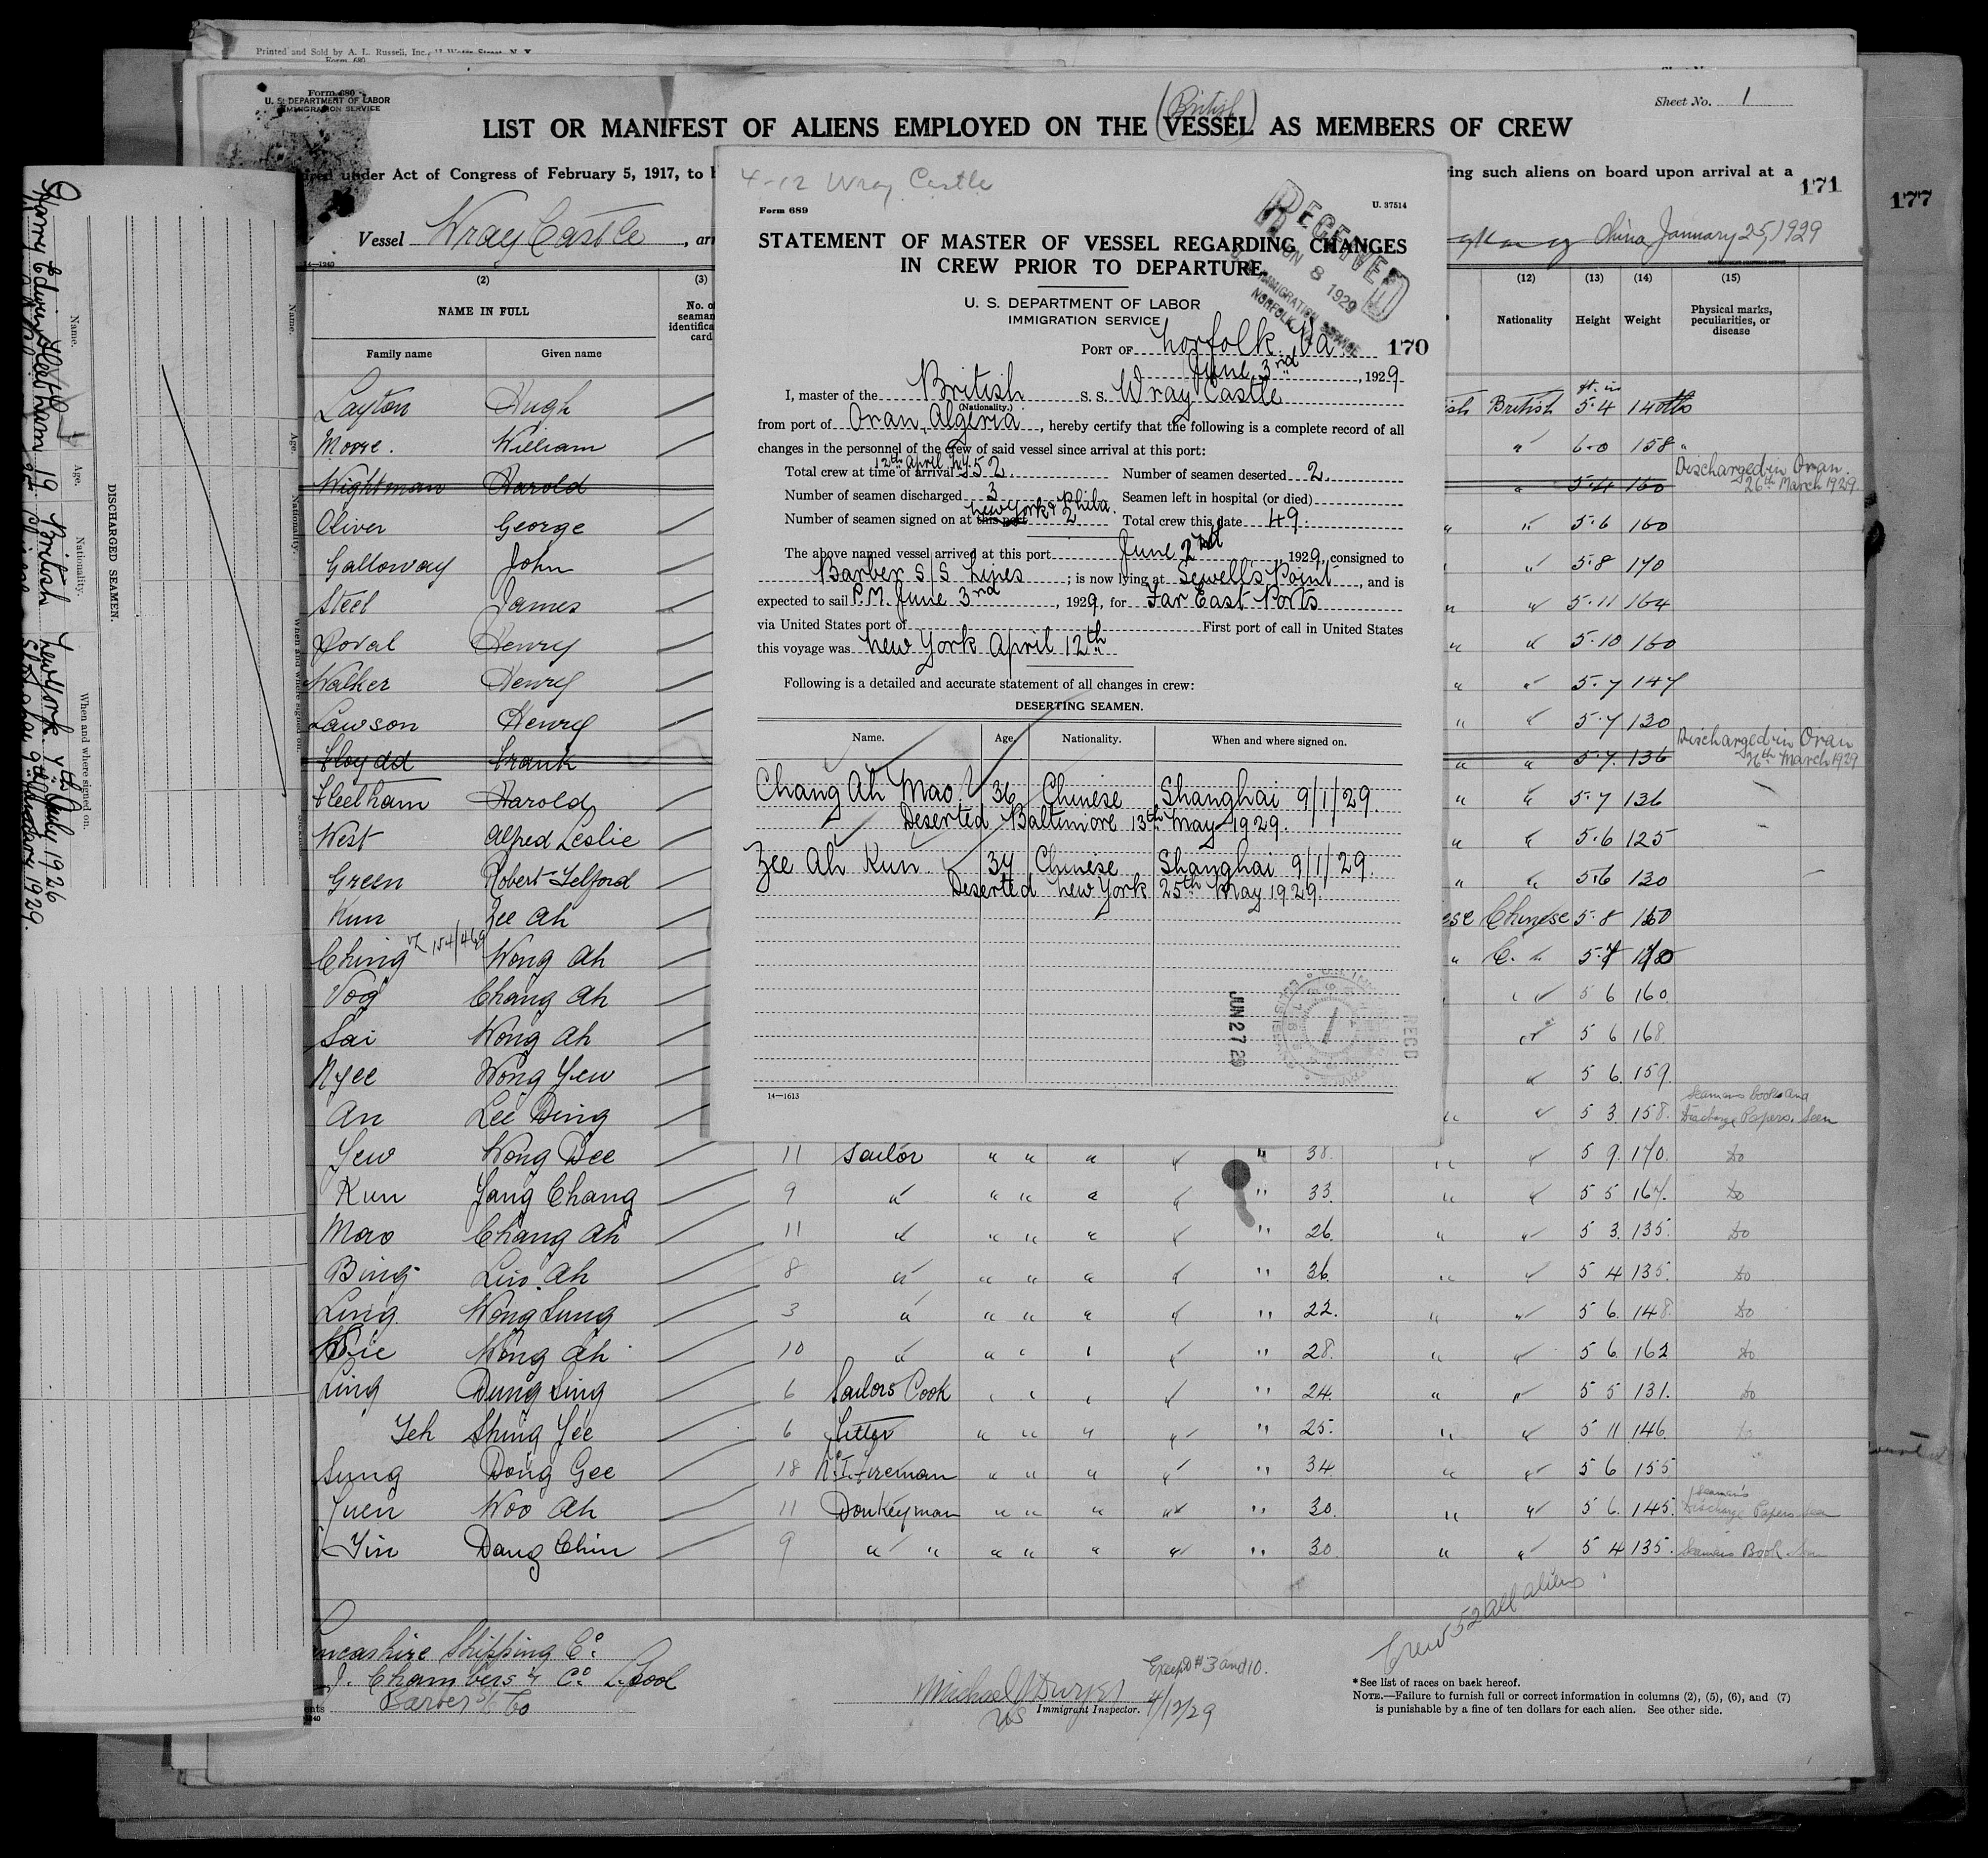 Printed and Sold by A. L. Russell, Inc.,
Form 680
Form 680
U. S. DEPARTMENT OF LABOR
IMMIGRATION SERVICE
Sheet No. 1
(British)
LIST OR MANIFEST OF ALIENS EMPLOYED ON THE VESSEL AS MEMBERS OF CREW
under Act of Congress of February 5, 1917, to
ing such aliens on board upon arrival at a
171
177
Vessel Wray Castle, arr
China, January 25, 1929
14—1240
(2) (3) (12) (13) (14) (15)
NAME IN FULL
Family name Given name
No. of seaman's identification card
Nationality Height Weight Physical marks, peculiarities, or disease
Layton Hugh British 5.4 140 lbs
Moore. William " 6-0 158 "
Wightman Harold " 5.4 160 Discharged in Oran. 26th March 1929
Oliver George " 5.6 160
Galloway John " 5.8 170
Steel James " 5.11 164
Doval Henry " 5.10 160
Walker Henry " 5.7 147
Lawson Henry " 5.7 130
Frank " 5.7. 136 Discharged in Oran 26th March 1929
Fleetham Harold " 5.7 136
West Alfred Leslie " 5.6 125
Green Robert Telford " 5.6 130
Kun Zee Ah Chinese 5.8 160
Ching Wong Ah
Chang Ah 5 6 160
Sai Wong Ah 5 6 168
Nyee Wong Yew 5 6. 159.
An Lee Ding 5 3. 158. Seamans books and Discharge Papers. Seen
Yew Wong Dee 11 Sailor " " " " " 38. " " 5 9. 170. Do
Kun Yang Chang 9 " " " " " " 33. " " 5 5 167. Do
Mao Chang Ah 11 " " " " " " 26. " " 5 3. 135. Do
Bing Liu Ah 8 " " " " " " 36. " " 5 4 135. Do
Ling Wong Sung 3 " " " " " " 22. " " 5 6. 148. Do
Wong Ah 10 " " " " " " 28. " " 5 6. 162 Do
Ling Dung Ling 6 Sailors Cook " " " " " 24. " " 5 5 131. Do
Yeh Shing Yee 6 Fitter " " " " " 25. " " 5 11 146.
Sung Dong Gee 18 No. 1. Fireman " " " " " 34 " " 5 6 155
Yuen Woo Ah 11 Donkeyman " " " " " 30. " " 5 6. 145. Seaman's Discharge Papers seen
Yin Dang Chin 9 " " " " " " " 30. " " 5 4 135. Seamans Book
Crew 52 all aliens
Lancashire Shipping Co.
J. Chambers & Co. L.pool
Barber S/S Co
Except # 3 and 10.
Michael J Dwyer
Immigrant Inspector.
4/12/29
*See list of races on back hereof.
NOTE.—Failure to furnish full or correct information in columns (2), (5), (6), and (7)
is punishable by a fine of ten dollars for each alien. See other side.
4-12 Wray Castle
Form 689
U. 37514
STATEMENT OF MASTER OF VESSEL REGARDING CHANGES
IN CREW PRIOR TO DEPARTURE
RECEIVED
JUN 8 1929
U.S. IMMIGRATION SERVICE
NORFOLK, VA.
U. S. DEPARTMENT OF LABOR
IMMIGRATION SERVICE
PORT OF Norfolk Va
170
June 3rd, 1929
I, master of the British S. S. Wray Castle
(Nationality.)
from port of Oran, Algeria, hereby certify that the following is a complete record of all
changes in the personnel of the crew of said vessel since arrival at this port:
Total crew at time of arrival 12th April N.Y. 52. Number of seamen deserted 2.
Number of seamen discharged 3 Seamen left in hospital (or died)
New York & Phila.
Number of seamen signed on at this port 2 Total crew this date 49.
The above named vessel arrived at this port June 2nd 1929, consigned to
Barber S/S Lines; is now lying at Sewell's Point, and is
expected to sail P.M. June 3rd, 1929, for Far East Ports
via United States port of First port of call in United States
this voyage was New York April 12th
Following is a detailed and accurate statement of all changes in crew:
DESERTING SEAMEN.
Name. Age. Nationality. When and where signed on.
Chang Ah Mao 36 Chinese Shanghai 9/1/29.
Deserted Baltimore 13th May 1929.
Zee Ah Kun 34 Chinese Shanghai 9/1/29.
Deserted New York 25th May 1929.
JUN 27 29
RECD
14—1613
DISCHARGED SEAMEN.
Name. Age. Nationality. When and where signed on.
Harry Edwin Fleetham 19 British New York 7th July 1926
Shanghai 9th January 1929.
Name. Age. Nationality. When and where signed on.